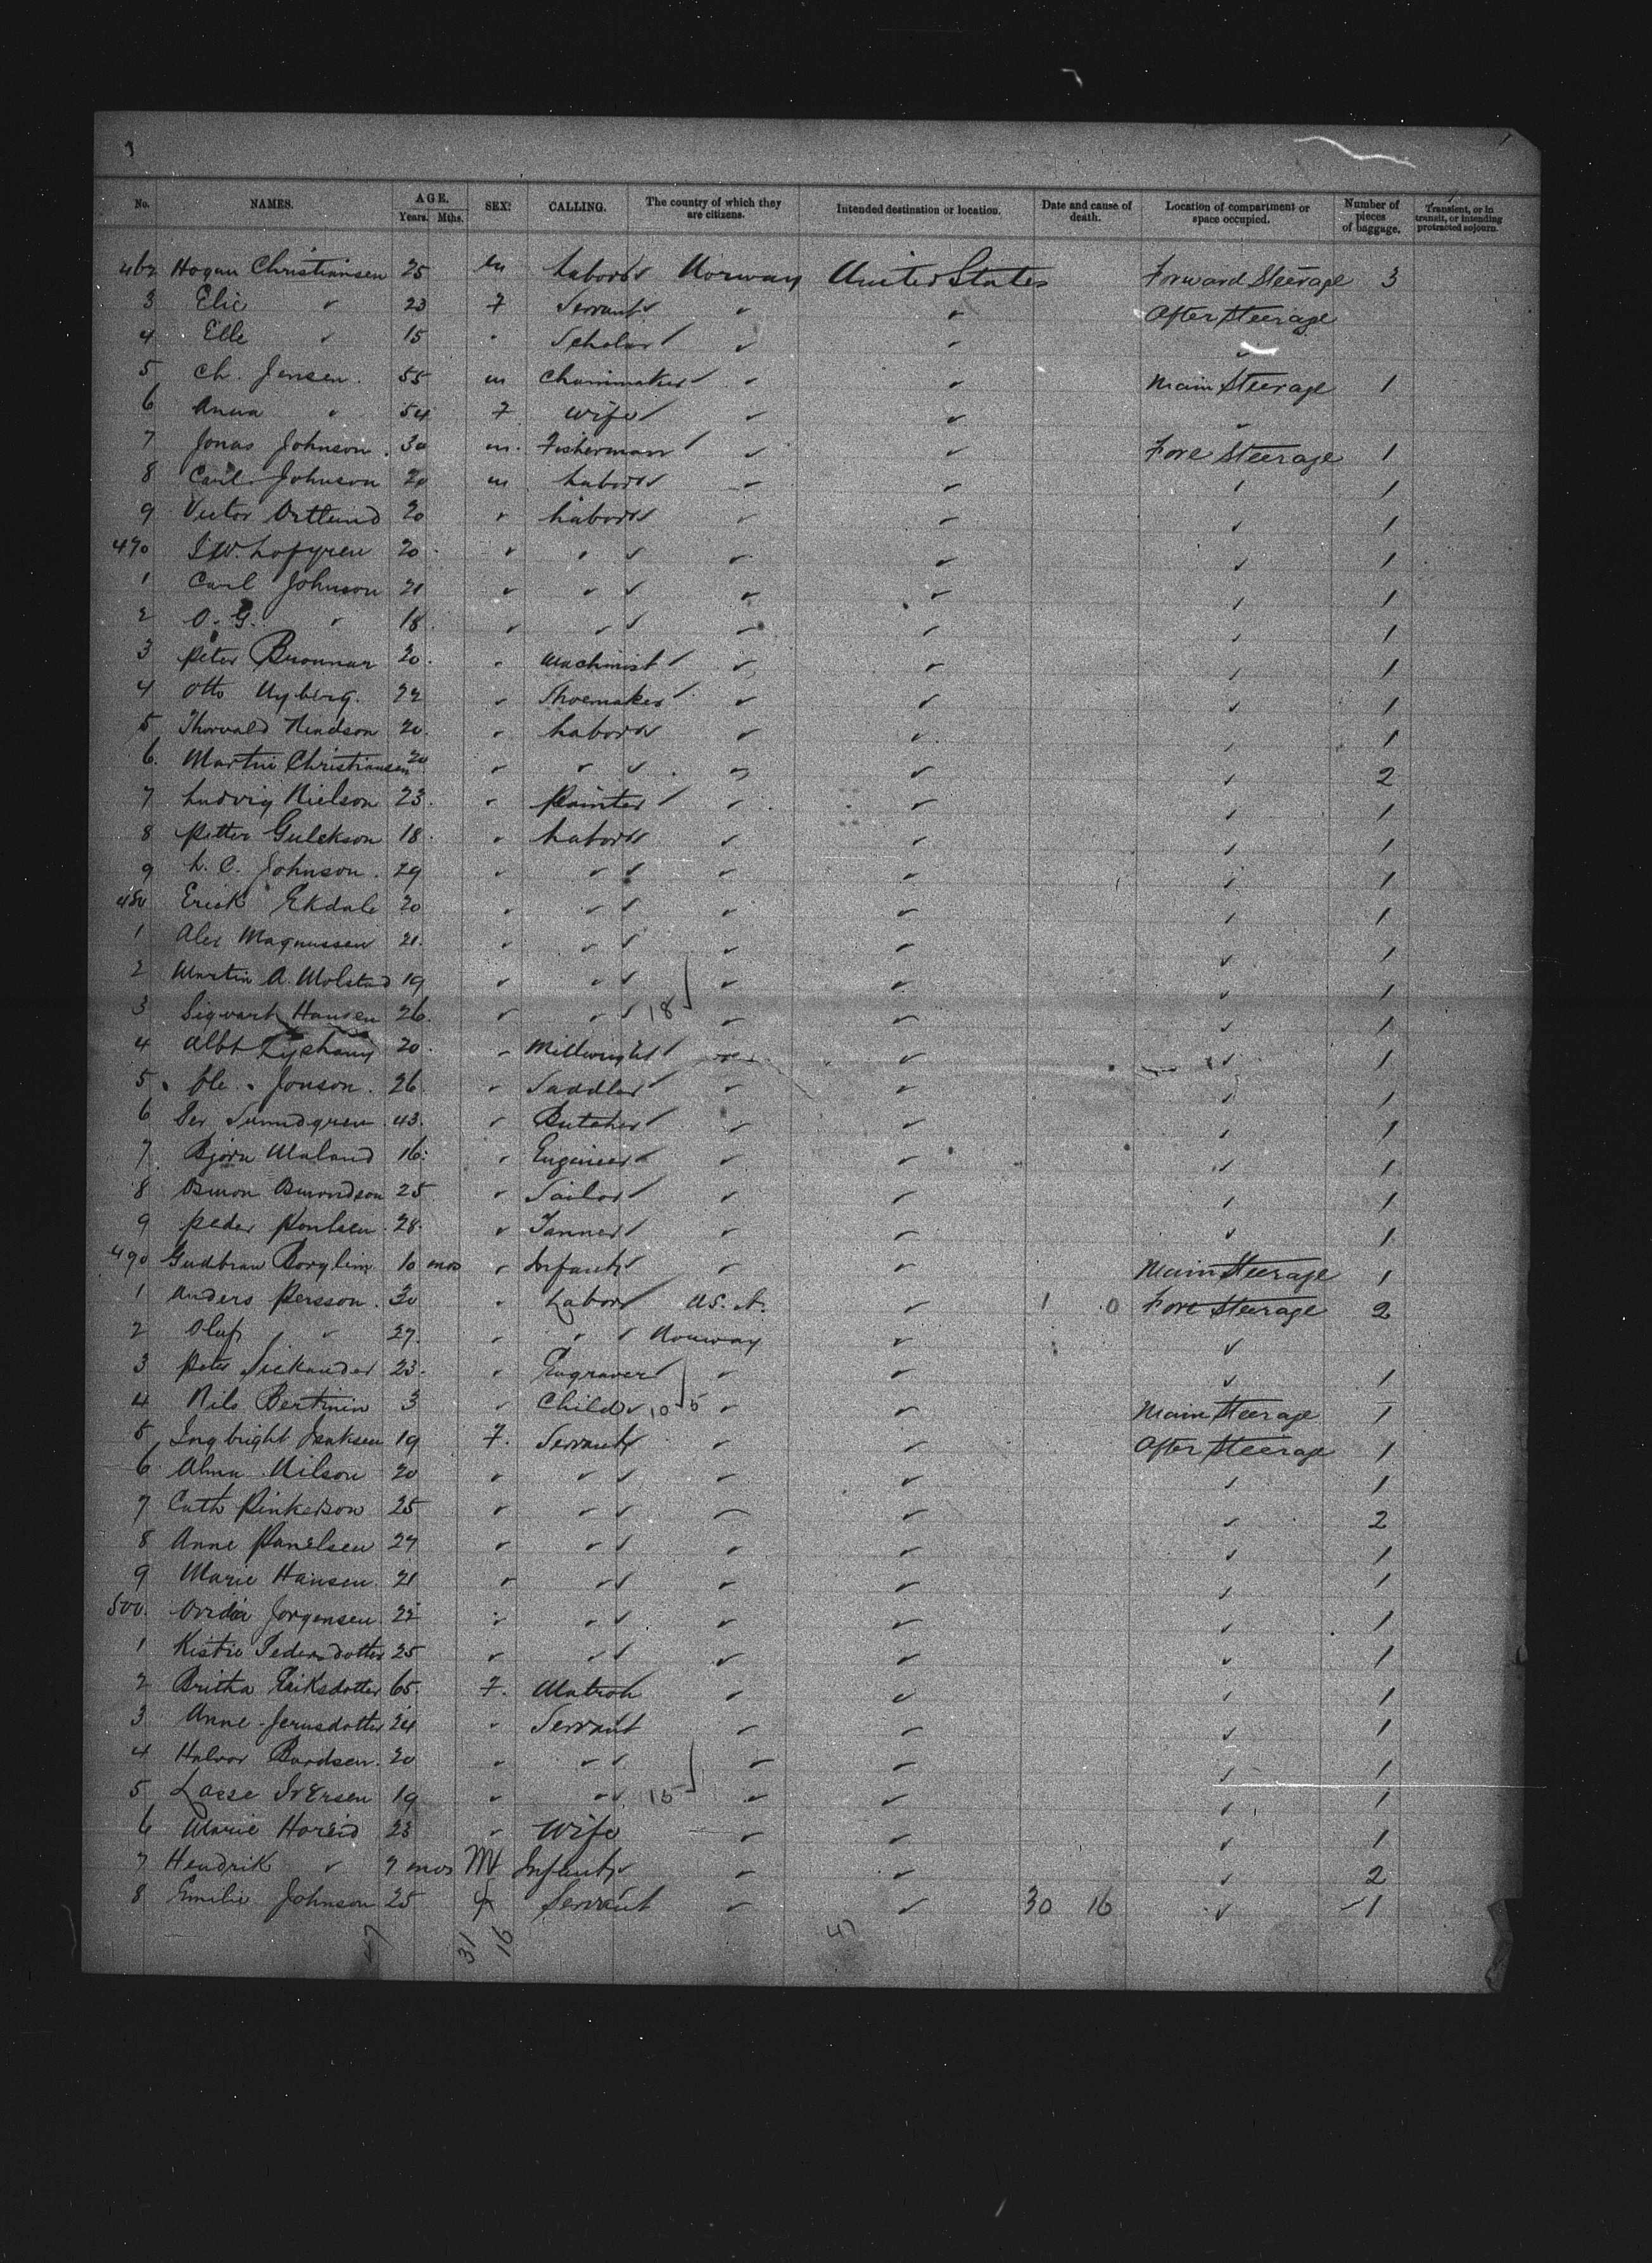 No. NAMES. AGE. Years. Mths. SEX. CALLING. The country of which they are citizens. Intended destination or location. Date and cause of death. Location of compartment or space occupied. Number of pieces of baggage. Transient, or in transit, or intending protracted sojourn.
462 Hogan Christiansen 25 m Labor Norway United States Forward Steerage 3
3 Elie " 23 F Servant " " After Steerage
4 Elle " 15 " Scholar " " "
5 Ch. Jensen 55 m " " Main Steerage 1
6 Anna " 54 F Wife " " "
7 Jonas Johnson 30 m Fisherman " " Fore Steerage 1
8 Carl Johnson 20 m Labor " " " 1
9 Victor Ortlund 20 " Labor " " " 1
470 Lofgren 20 " " " " " 1
1 Carl Johnson 21 " " " " " 1
2 O. G. " 18 " " " " " 1
3 Peter Bronnar 20 " Machinist " " " 1
4 Otto Nyberg 22 " Shoemaker " " " 1
5 Thorvald 20 " Labor " " " 1
6 Martin Christiansen 20 " " " " " 2
7 Ludvig Nielson 23 " Painter " " " 1
8 Petter Gulekson 18 " Labor " " " 1
9 L. C. Johnson 29 " " " " " 1
480 Erick Ekdale 20 " " " " " 1
1 Alex Magnussen 21 " " " " " 1
2 Martin A. Molstad 19 " " " " " 1
3 Sigvart Hansen 26 " " 18 " " " 1
4 Albt 20 " Millwright " " " 1
5 Ole Jonson 26 " Saddler " " " 1
6 Sunndgren 43 " Butcher " " " 1
7 Bjorn Maland 16 " Engineer " " " 1
8 Osmon Osmondson 25 " Sailor " " " 1
9 Peder Poulsen 28 " Tanner " " " 1
490 Gudbran Borglim 10 mos " Infant " " Main Steerage 1
1 Anders Persson 30 " Labor U.S.A. " 1 0 Fore Steerage 2
2 Oluf " 27 " " Norway " "
3 Peter Sickander 23 " Engraver " " " 1
4 Nils Bertinin 3 " Child 10 5 " " Main Steerage 1
5 Ingbright Isaksen 19 F. Servant " " After Steerage 1
6 Alma Nilson 20 " " " " " 1
7 Cath Pinkerson 25 " " " " " 2
8 Anne Panelsen 27 " " " " " 1
9 Marie Hansen 21 " " " " " 1
500 Ovidia Jorgensen 22 " " " " " 1
1 Kistie Pedersdotter 25 " " " " " 1
2 Britha Eriksdotter 65 F. Matron " " " 1
3 Anne Jensdotter 24 " Servant " " " 1
4 Halvor Bardsen 20 " " " " " 1
5 Lasse Iversen 19 " " 15 " " " 1
6 Marie Horeid 23 " Wife " " " 1
7 Hendrik " 7 mos M Infant " " " 2
8 Emilie Johnson 25 f Servant " " 30 16 " 1
47 31 16 47